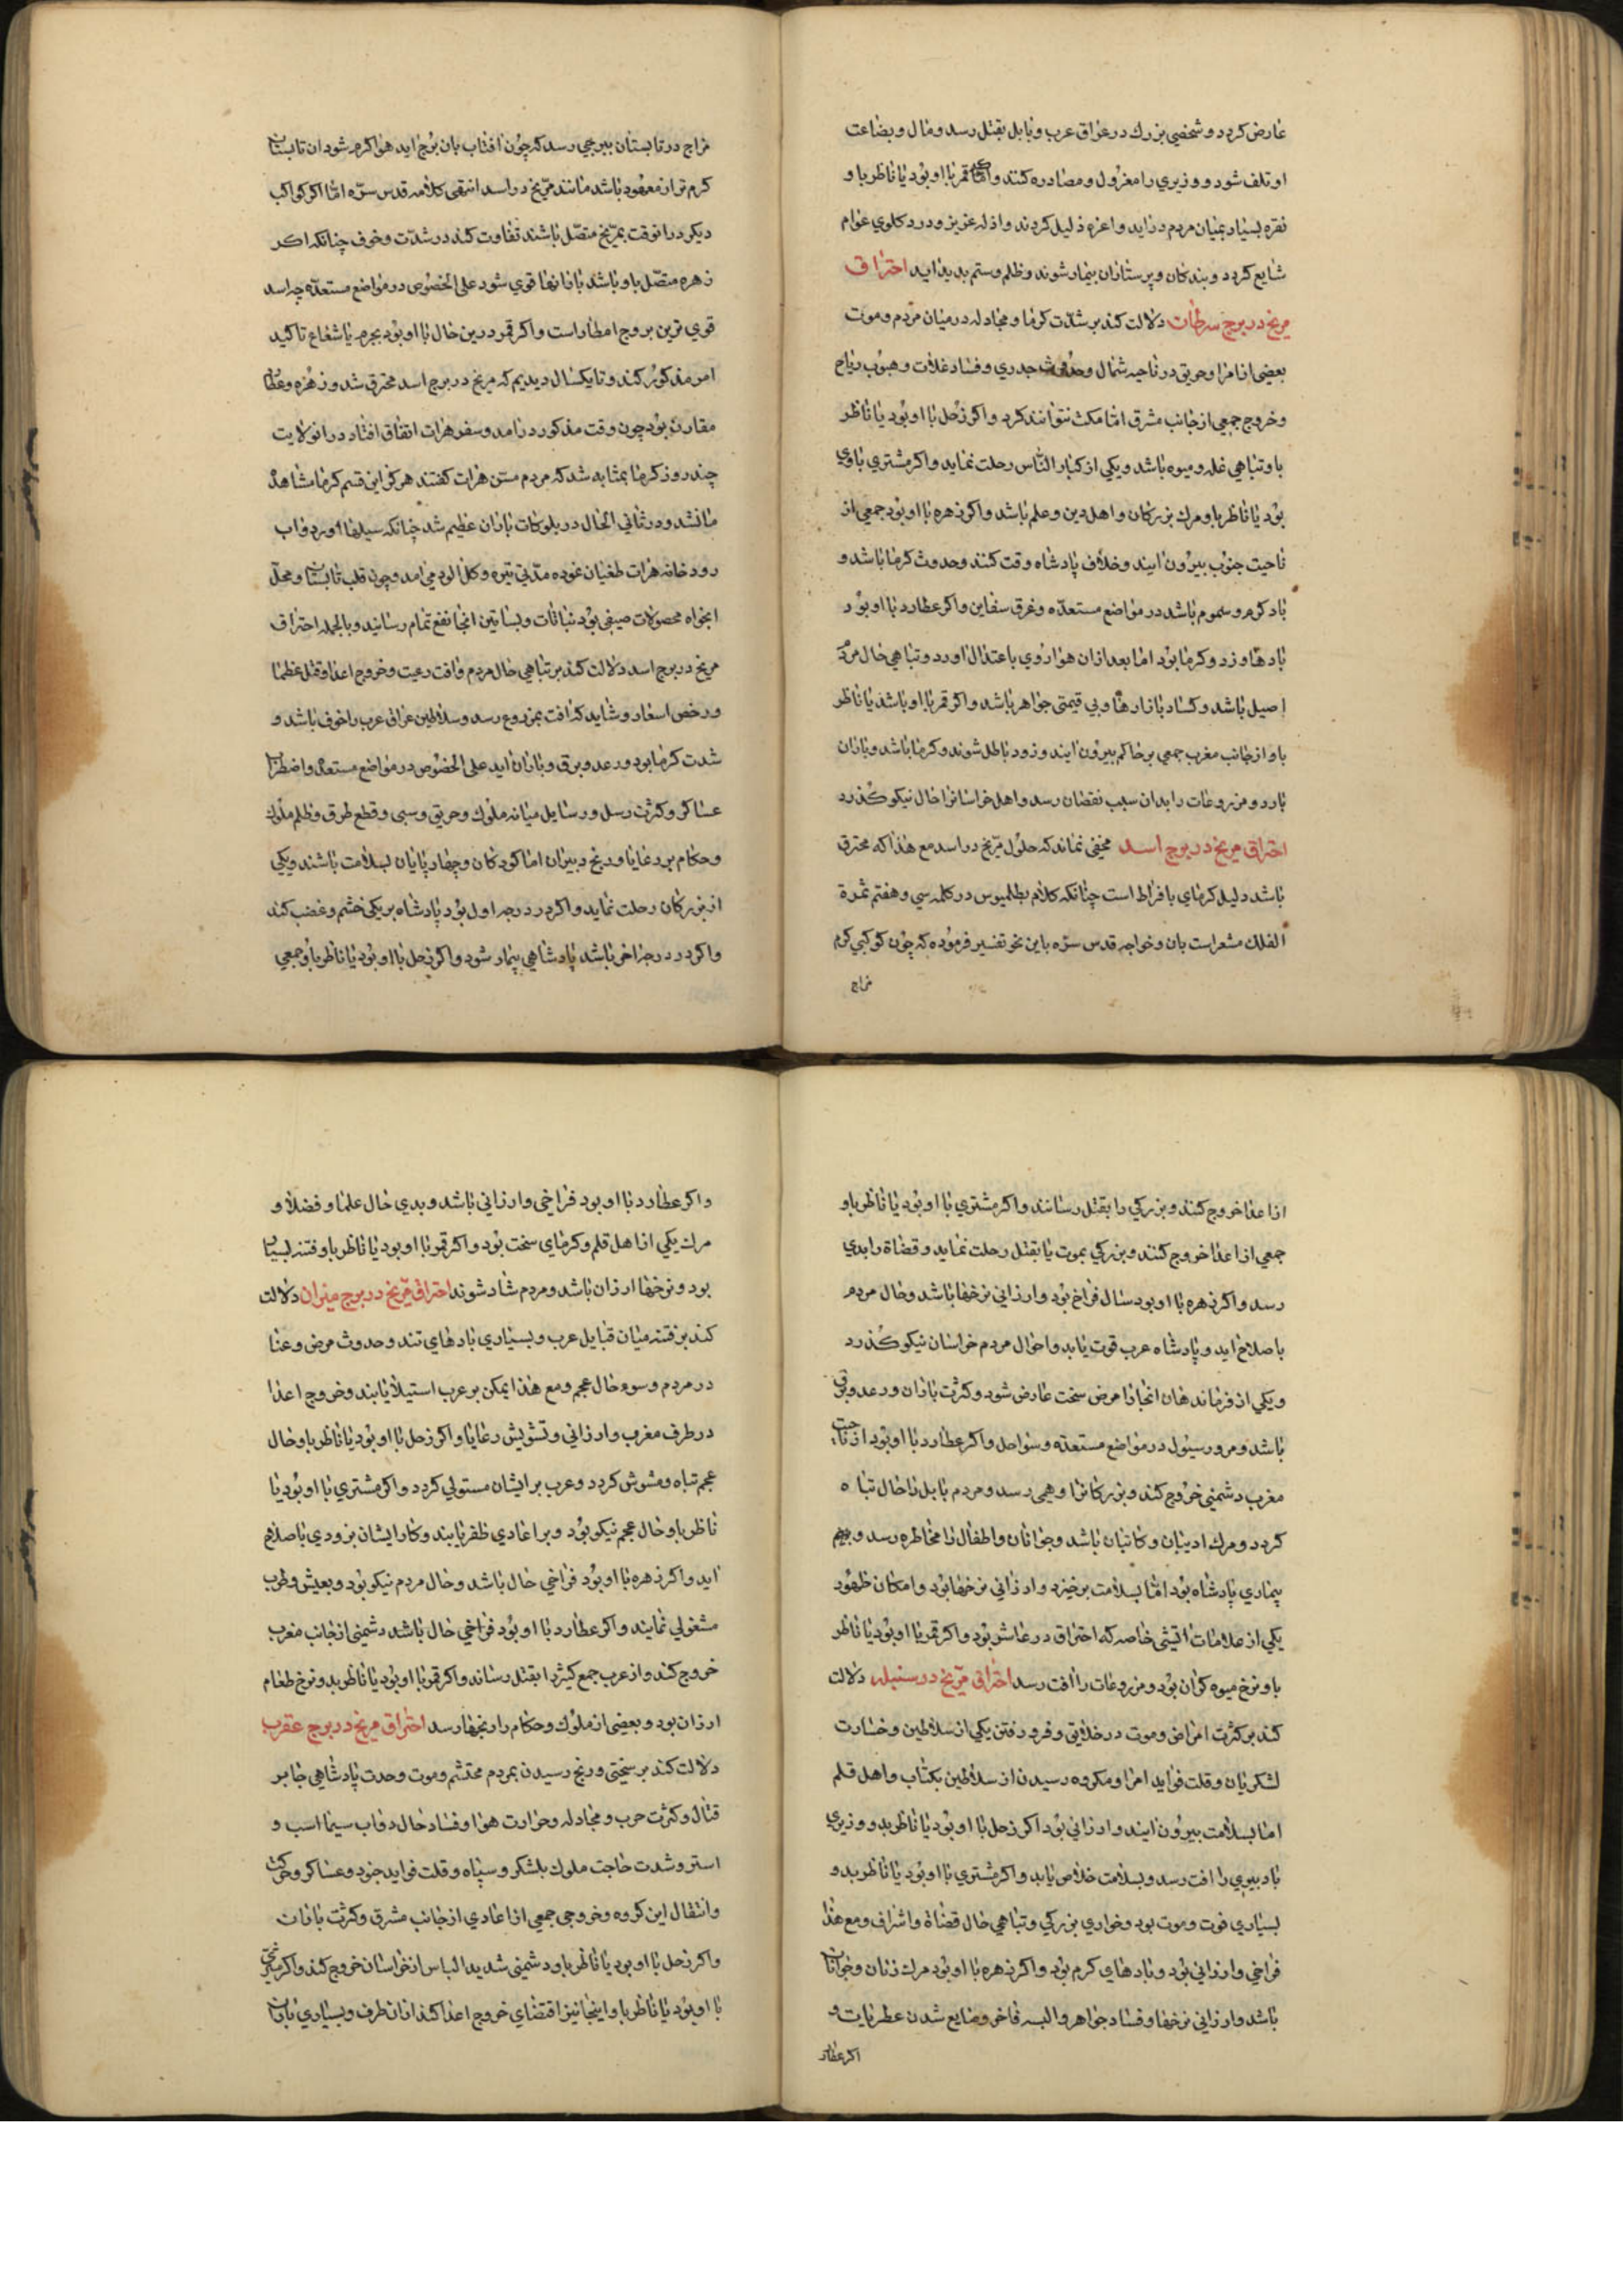 عارض کردد و شخصی بزرك در عراق عرب و بابل بقتل رسد و مال و بضاعت
او تلف شود و وزیری را معزول و مصادره کنند و اکر قمر با او بود یا ناظر باو
نقره بسیار بمیان مردم در اید و اعزه ذلیل کردند و اذله عزیز و درد کلوی عوام
شایع کردد و بندکان و پرستاران بیمار شوند و ظلم و ستم بدید اید احتراق
مریخ در برج سرطان دلالت کند بر شدّت کرما و مجادله در میان مردم و موت
بعضی از امرا و حریق در ناحیه شمال و حدوث جدری و فساد غلات و هبوب ریاح
و خروج جمعی از جانب مشرق امّا مکث نتوانند کرد و اکر زحل با او بود یا ناظر
باو تباهی غله و میوه باشد و یکی از کبار النّاس رحلت نماید و اکر مشتری باوی
بود یا ناظر باو مرك بزرکان و اهل دین و علم باشد و اکر زهره با او بود جمعی از
ناحیت جنوب بیرون ایند و خلاف پادشاه وقت کنند و حدوث کرما باشد و
باد کرم و سموم باشد در مواضع مستعدّه و غرق سفاین و اکر عطارد با او بود
بادها وزد و کرما بود اما بعد ازان هوا روی باعتدال اورد و تباهی حال مردم
اصیل باشد و کساد بازارها و بی قیمتی جواهر باشد و اکر قمر با او باشد یا ناظر
باو از جانب مغرب جمعی بر حاکم بیرون ایند و زود باطل شوند و کرما باشد و باران
بارد و مزروعات را بدان سبب نقصان رسد و اهل خراسانرا حال نیکو کذرد
احتراق مریخ در برج اسد مخفی نماند که حلول مرّیخ در اسد مع هذا که محترق
باشد دلیل کرمای بافراط است چنانکه کلام بطلمیوس در کلمه سی و هفتم ثمرة
الفلك مشعر است بان و خواجه قدس سرّه باین نحو تفسیر فرموده که چون کوکبی کرم
مزاج
مزاج در تابستان ببرجی رسد که چون افتاب بان برج اید هوا کرم شود ان تابستان
کرم تر از معهود باشد مانند مرّیخ در اسد انتهی کلامه قدس سرّه امّا اکر کواکب
دیکر در انوقت بمرّیخ متصّل باشند تفاوت کند در شدّت و خوف چنانکه اکر
زهره متصّل باو باشد بارانها قوی شود علی الخصوص در مواضع مستعدّه چه اسد
قوی ترین بروج امطار است و اکر قمر درین حال با او بود بجرم یا شعاع تاکید
امر مذکور کند و تا یکسال دیدیم که مریخ در برج اسد محترق شد و زهره و عطارد
مقارن بود چون وقت مذکور درامد و سفر هرات اتفاق افتاد در انولایت
چند روز کرما بمثابه شد که مردم مسن هرات کفتند هرکز این قسم کرما مشاهده
ما نشد و در ثانی الحال در بلوکات باران عظیم شد چنانکه سیلها اورد و اب
رودخانه هرات طغیان نموده مدّتی تیره و کل الود می امد و چون قلب تابستان و محلّ
ابخواه محصولات صیفی بود نباتات و بساتین انجا نفع تمام رسانید و بالجمله احتراق
مریخ در برج اسد دلالت کند بر تباهی حال مردم و افت رعیت و خروج اعدا و قتل عظما
و رخص اسعار و شاید که افت بمزروع رسد و سلاطین عراق عرب را خوف باشد و
شدت کرما بود و رعد و برق و باران اید علی الخصوص در مواضع مستعدّه و اضطراب
عساکر و کثرت رسل و رسایل میانه ملوك و حریق و سبی و قطع طرق و ظلم ملوك
و حکام بر رعایا و رنج دبیران اما کودکان و چهارپایان بسلامت باشند و یکی
از بزرکان رحلت نماید و اکر در درجه اول بود پادشاه بر یکی خشم و غضب کند
و اکر در درجه اخر باشد پادشاهی بیمار شود و اکر زحل با او بود یا ناظر باو جمعی
از اعدا خروج کنند و بزرکی را بقتل رسانند و اکر مشتری با او بود یا ناظر باو
جمعی از اعدا خروج کنند و بزرکی بموت یا بقتل رحلت نماید و قضاة را بدی
رسد و اکر زهره با او بود سال فراخ بود و ارزانی نرخها باشد و حال مردم
باصلاح اید و پادشاه عرب قوت یابد و احوال مردم خراسان نیکو کذرد
و یکی از فرماندهان انجا را مرض سخت عارض شود و کثرت باران و رعد و برق
باشد و مرور سیول در مواضع مستعدّه و سواحل و اکر عطارد با او بود از ناحیت
مغرب دشمنی خروج کند و بزرکانرا وهمی رسد و مردم بابل را حال تباه
کردد و مرك ادیبان و کاتبان باشد و جوانان و اطفال را مخاطره رسد و بیم
بیماری پادشاه بود امّا بسلامت برخیزد و ارزانی نرخها بود و امکان ظهور
یکی از علامات اتشی خاصه که احتراق در عاشر بود و اکر قمر با او بود یا ناظر
باو نرخ میوه کران بود و مزروعات را افت رسد احتراق مرّیخ در سنبله دلالت
کند بر کثرت امراض و موت در خلایق و فرو رفتن یکی از سلاطین و خسارت
لشکریان و قلت فواید امرا و مکروه رسیدن از سلاطین بکتاب و اهل قلم
اما بسلامت بیرون ایند و ارزانی بود اکر زحل با او بود یا ناظر بدو وزیری
یا دبیری را افت رسد و بسلامت خلاص یابد و اکر مشتری با او بود یا ناظر بدو
بسیاری فوت و موت بود و خواری بزرکی و تباهی حال قضاة و اشراف و مع هذا
فراخی و ارزانی بود و بادهای کرم بود و اکر زهره با او بود مرك زنان و جوانان
باشد و ارزانی نرخها و فساد جواهر و البسه فاخر و ضایع شدن عطریات و
اکر عطارد
و اکر عطارد با او بود فراخی و ارزانی باشد و بدی حال علما و فضلا و
مرك یکی از اهل قلم و کرمای سخت بود و اکر قمر با او بود یا ناظر باو فتنه بسیار
بود و نرخها ارزان باشد و مردم شاد شوند احتراق مرّیخ در برج میزان دلالت
کند بر فتنه میان قبایل عرب و بسیاری بادهای تند و حدوث مرض و عنا
در مردم و سوء حال عجم و مع هذا یمکن بر عرب استیلا یابند و خروج اعدا
در طرف مغرب و ارزانی و تشویش رعایا و اکر زحل با او بود یا ناظر باو حال
عجم تباه و مشوش کردد و عرب بر ایشان مستولی کردد و اکر مشتری با او بود یا
ناظر باو حال عجم نیکو بود و بر اعادی ظفر یابند و کار ایشان بزودی باصلاح
اید و اکر زهره با او بود فراخی حال باشد و حال مردم نیکو بود و بعیش و طرب
مشغولی نمایند و اکر عطارد با او بود فراخی حال باشد دشمنی از جانب مغرب
خروج کند و از عرب جمع کثیر را بقتل رساند و اکر قمر با او بود یا ناظر بدو نرخ طعام
ارزان بود و بعضی از ملوك و حکام را رنجها رسد احتراق مریخ در برج عقرب
دلالت کند بر سختی و رنج رسیدن بمردم محتشم و موت وحدت پادشاهی جابر
قتال و کثرت حرب و مجادله و حرارت هوا و فساد حال دواب سیما اسب و
استر و شدت حاجت ملوك بلشکر و سپاه و قلت فواید جنود و عساکر و حرکت
و انتقال این کروه و خروجی جمعی از اعادی از جانب مشرق و کثرت باران
و اکر زحل با او بود یا ناظر باو دشمنی شدید الباس از خراسان خروج کند و اکر مشتری
با او بود یا ناظر باو اینجا نیز اقتضای خروج اعدا کند ازان طرف و بسیاری باران